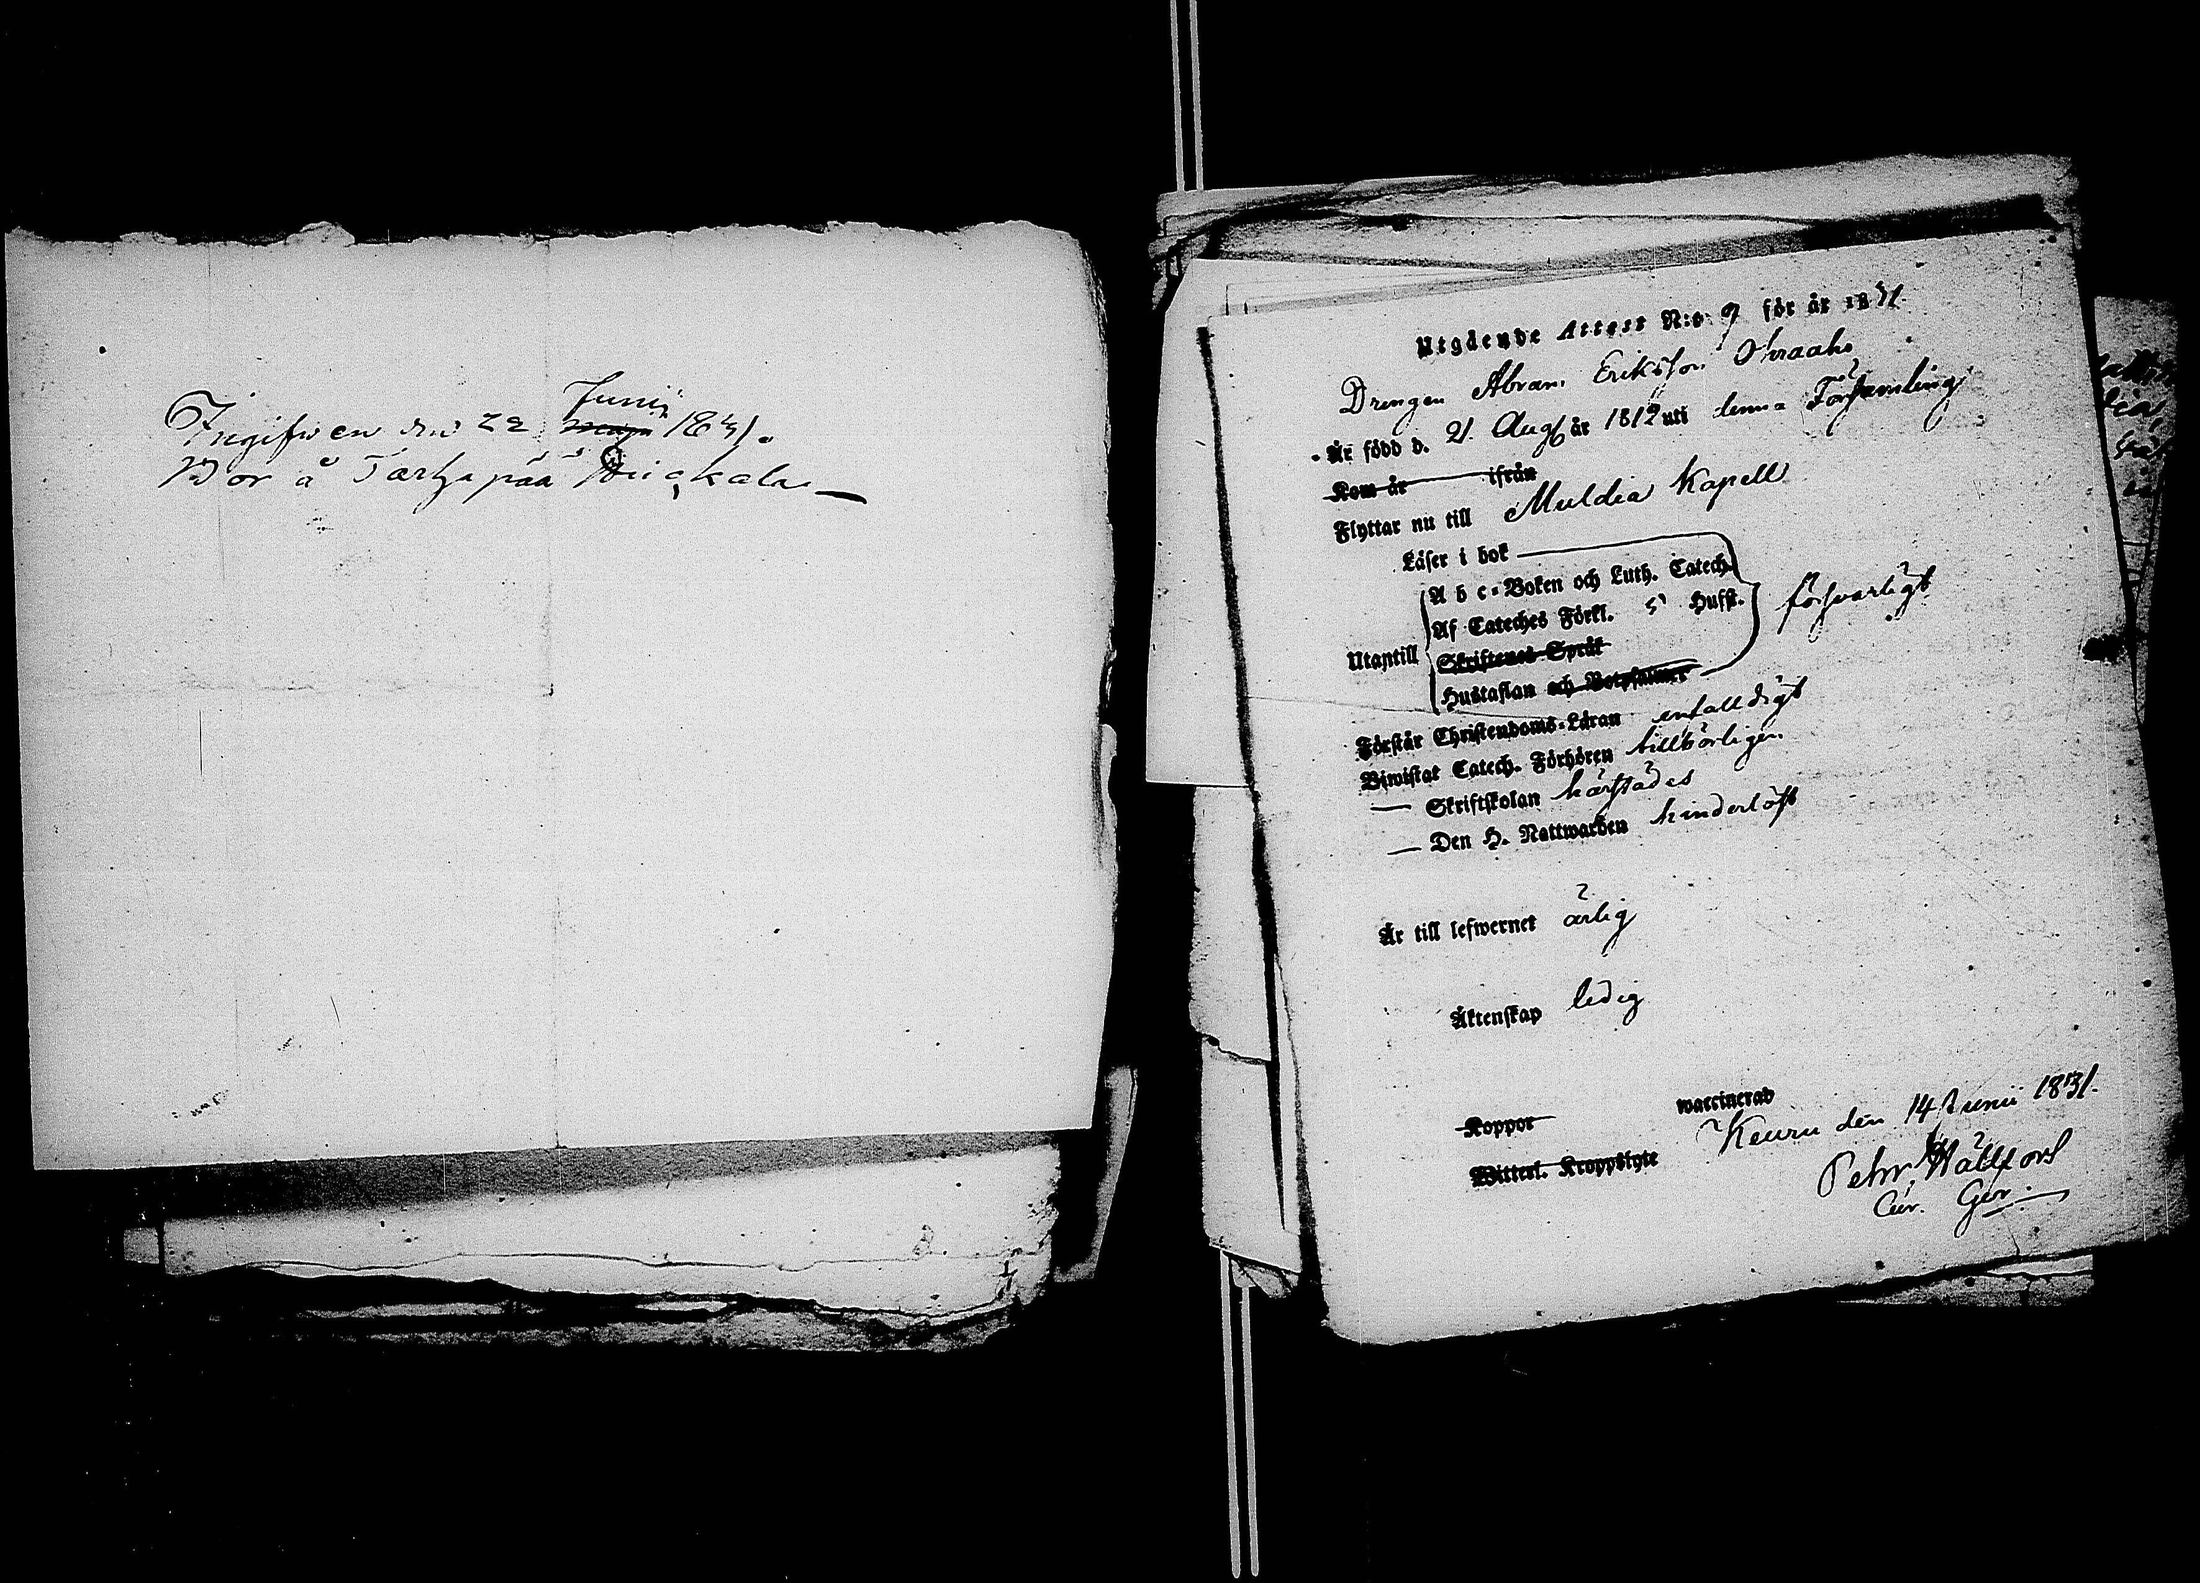 Ingifwen den 22 Junii 1831.
Bor å Tarhapää
Utgående Attest N:o 9 för år 1831.
Drengen Abram Eriksson
Är född d. 21 Aug. år 1812 uti denna Församling
Kom år ifrån
Flyttar nu till Muldia Kapell
Läser i bok
A b c-Boken och Luth. Catech.
Af Cateches Förkl. 5 Hufst. försvarligt
Utantill
Skriftenes Språk
Hustaflan och Botpsalmer
Förstår Christendoms-Läran enfalldigt
Biwistat Catech. Förhören tillbörligen
— Skriftskolan härstädes
— Den H. Nattwarden hinderlöst
Är till lefwernet ärlig
Äktenskap ledig
Koppor waccinerad
Witterl. Kroppslyte
Keuru den 14 Junii 1831.
Pehr Hällfors